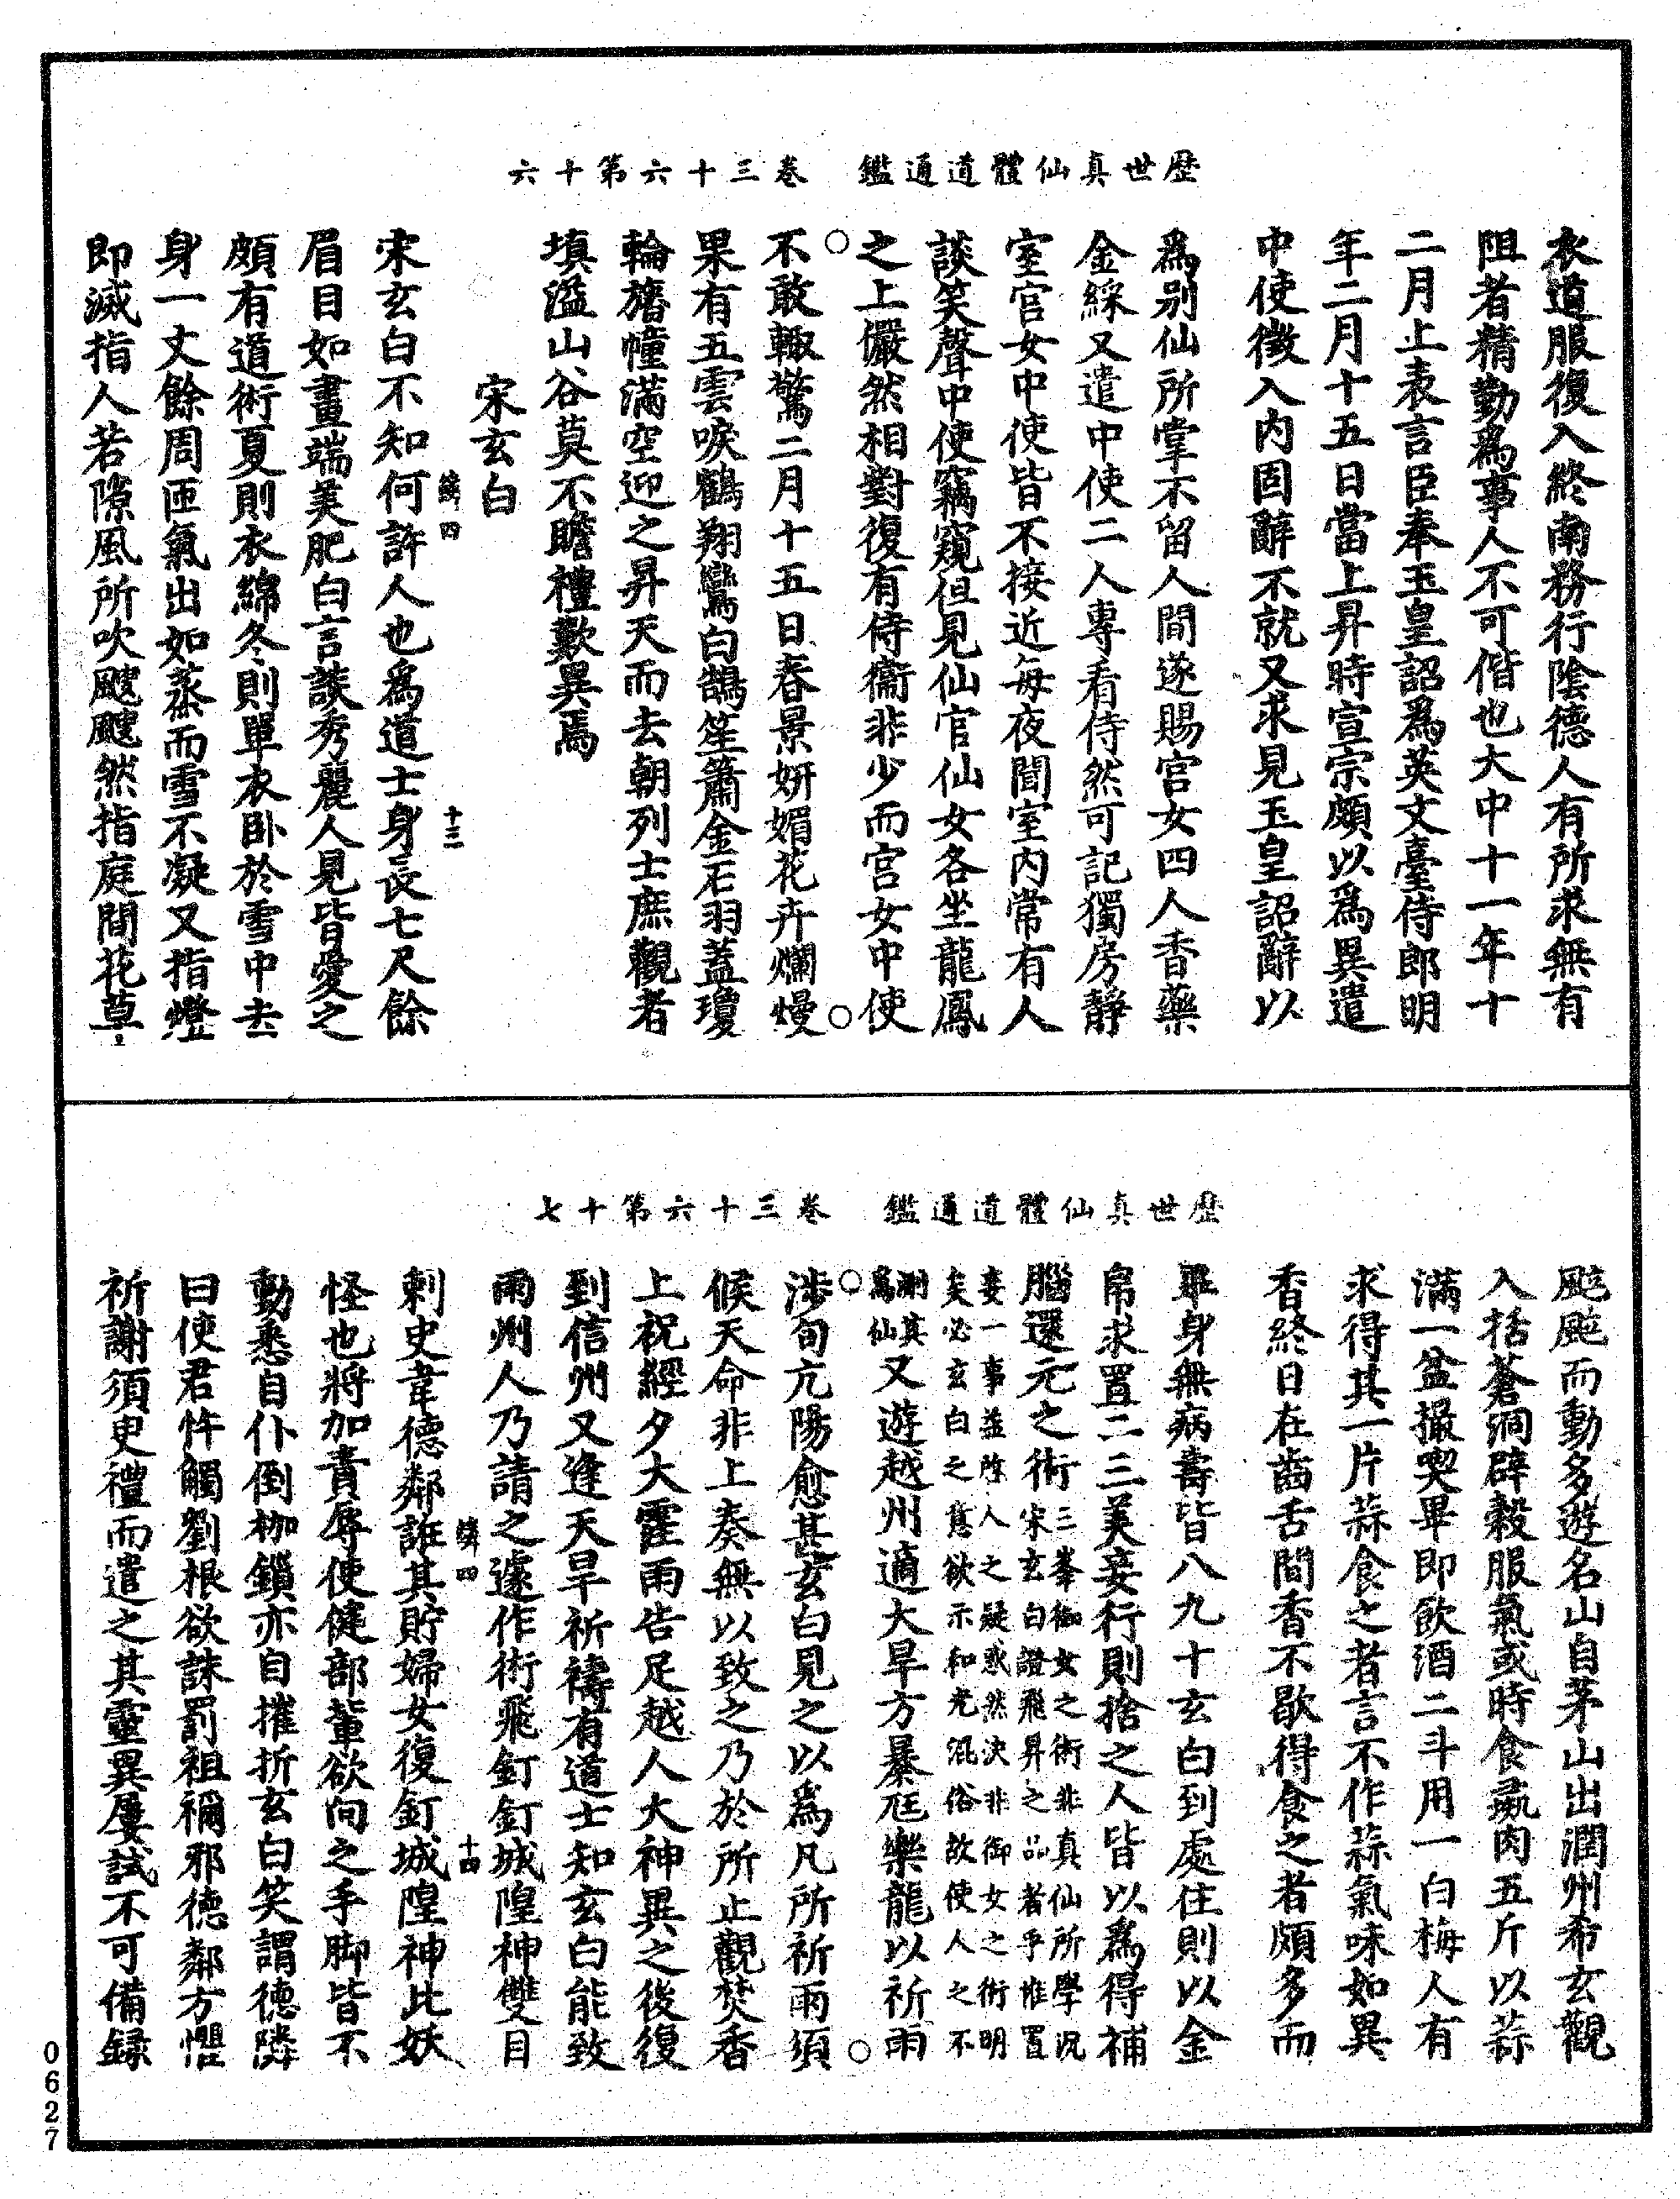 歷世真仙體道通鑑　卷三十六第十六
衣道服復入終南務行陰德人有所求無有
阻者精勤爲事人不可偕也大中十一年十
二月上表言臣奉玉皇詔爲英文臺侍郎明
年二月十五日當上昇時宣宗頗以爲異遣
中使徵入內固辭不就又求見玉皇詔辭以
爲別仙所掌不留人間遂賜宮女四人香藥
金綵又遣中使二人專看侍然可記獨房靜
室宮女中使皆不接近每夜聞室內常有人
談笑聲中使竊窺但見仙官仙女各坐龍鳳
之上儼然相對復有侍衞非少而宮女中使
不敢輙驚二月十五日春景妍媚花卉爛熳
果有五雲唳鶴翔鸞白鵠笙簫金石羽蓋瓊
輪旛幢滿空迎之昇天而去朝列士庶觀者
填溢山谷莫不瞻禮歎異焉
宋玄白
鱗四　十三
宋玄白不知何許人也爲道士身長七尺餘
眉目如畫端美肥白言談秀麗人見皆愛之
頗有道術夏則衣綿冬則單衣臥於雪中去
身一丈餘周匝氣出如蒸而雪不凝又指燈
即滅指人若隙風所吹颼颼然指庭間花草
歷世真仙體道通鑑　卷三十六第十七
颭颭而動多遊名山自茅山出潤州希玄觀
入括蒼洞辟榖服氣或時食彘肉五斤以蒜
滿一盆撮喫畢即飲酒二斗用一白梅人有
求得其一片蒜食之者言不作蒜氣味如異
香終日在齒舌間香不歇得食之者頗多而
畢身無病壽皆八九十玄白到處住則以金
帛求置二三美妾行則捨之人皆以爲得補
腦還元之術三峯御女之術非真仙所學況宋玄白證飛昇之品者乎惟置
妾一事益除人之疑惑然決非御女之術明矣必玄白之舊欲示和光混俗故使人之不
測其爲仙又遊越州適大旱方暴尫樂龍以祈雨
涉旬亢陽愈甚玄白見之以爲凡所祈雨須
候天命非上奏無以致之乃於所止觀焚香
上祝經夕大霪雨告足越人大神異之後復
到信州又逢天旱祈禱有道士知玄白能致
雨州人乃請之遽作術飛釘釘城隍神雙目
鱗四　十四
刺史韋德鄰誑其貯婦女復釘城隍神此妖
怪也將加責辱使健部輩欲向之手脚皆不
動悉自仆倒枷鎖亦自摧折玄白笑謂德隣
曰使君忤觸劉根欲誅罰祖禰邪德鄰方懼
祈謝須臾禮而遣之其靈異屢試不可備録
0627